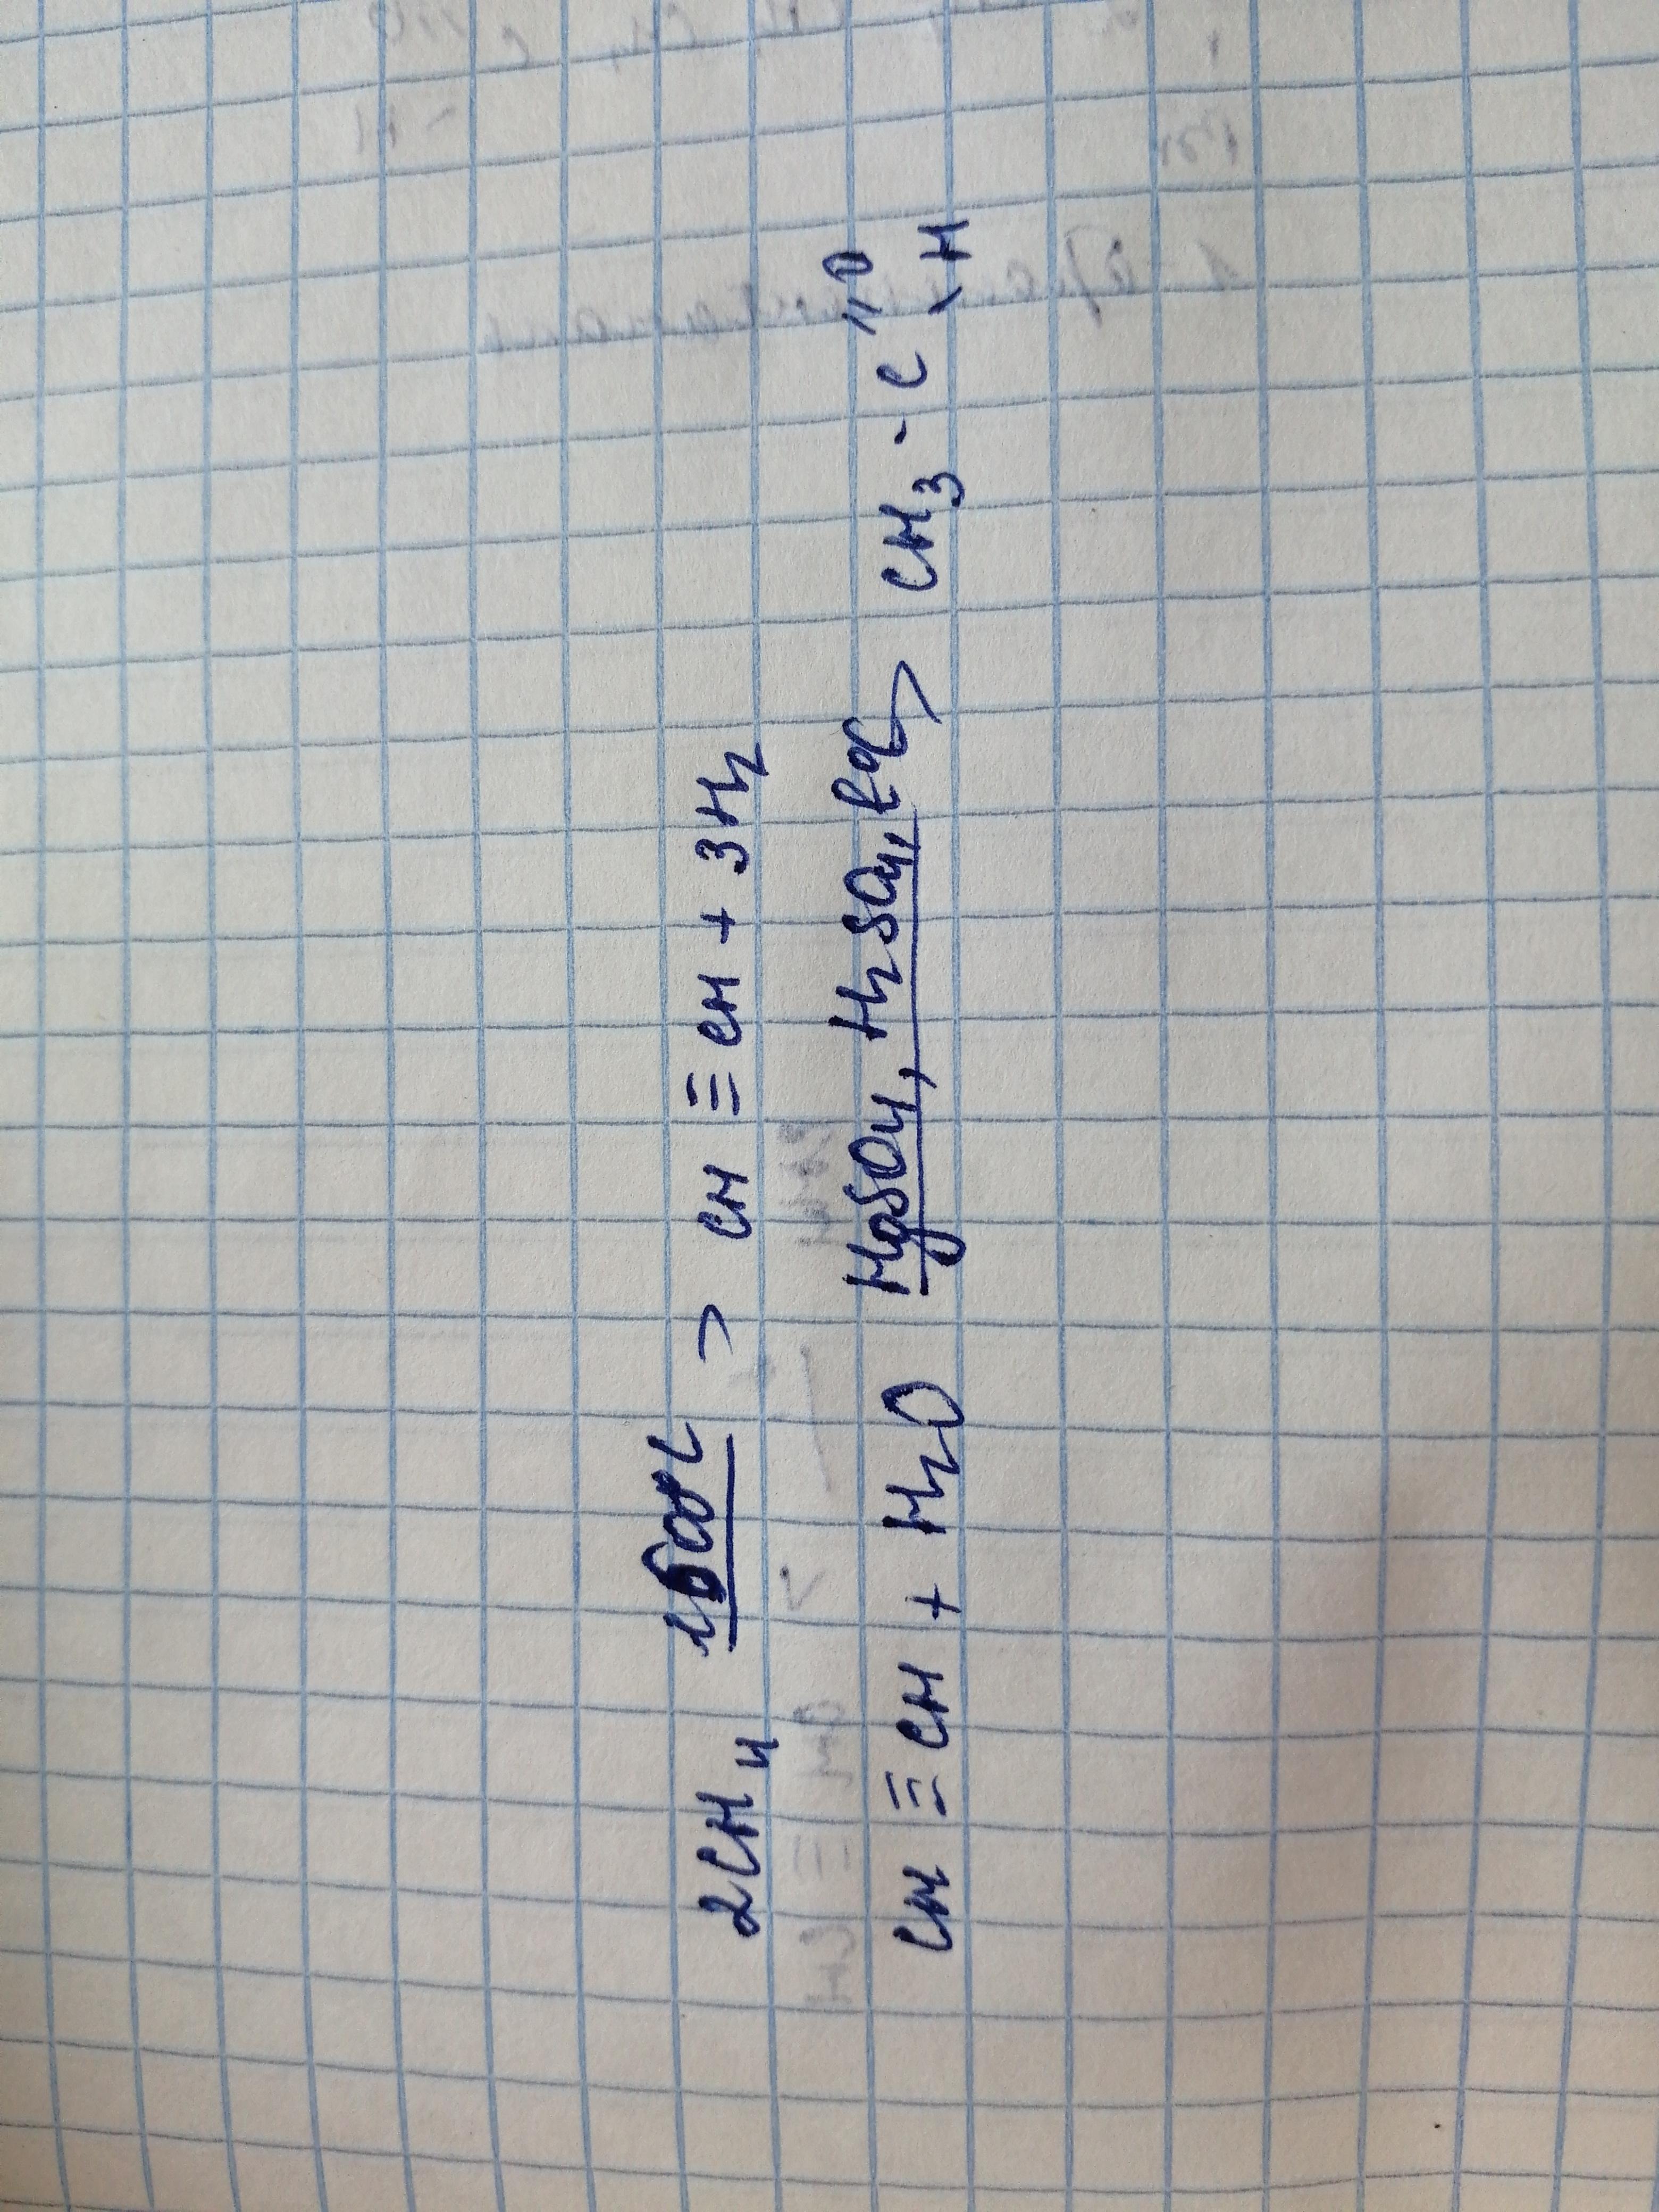 2CH₄ 1500°C → CH ≡ CH + 3H₂
CH ≡ CH + H₂O HgSO₄, H₂SO₄, → CH₃ - C // O \ H